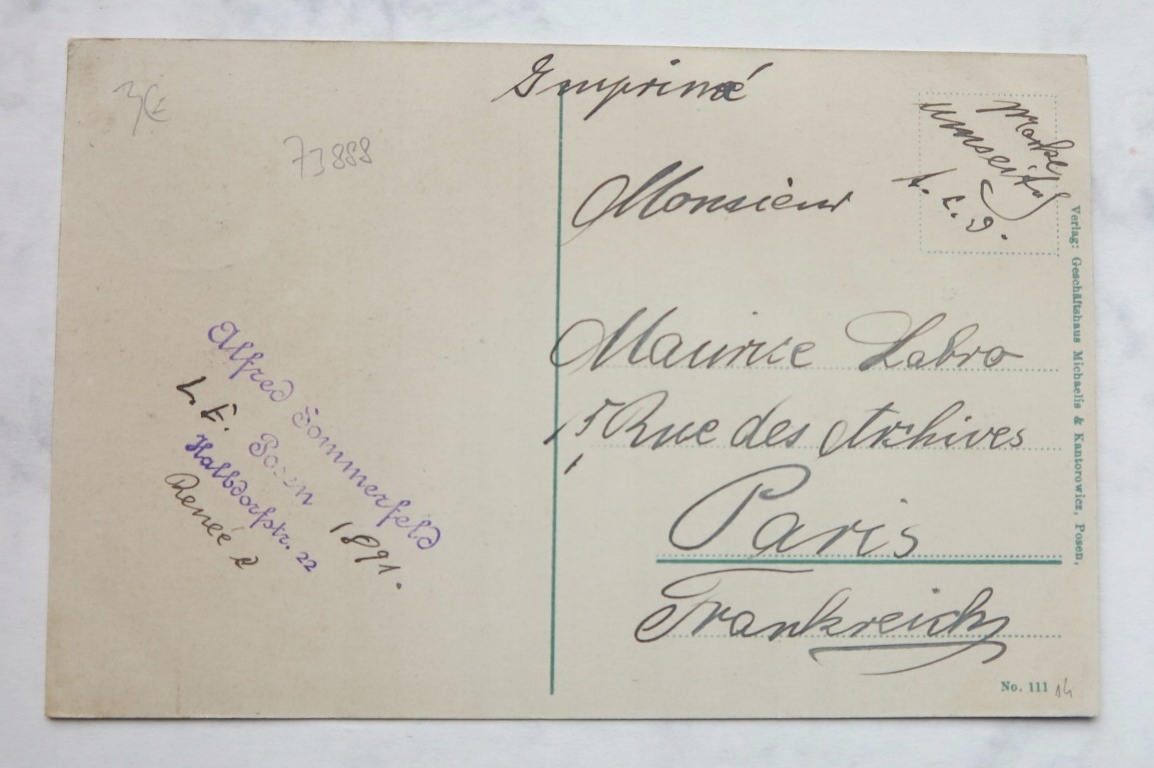 3€
73888
Imprimé
Marke
umseitig
t. c. d.
Monsieur
Maurice Labro
15 Rue des Archives
Paris
Frankreich
Alfred Sommerfeld
L. E. 1891.
Posen
Halbdorfstr. 22
Renée
Verlag: Geschäftshaus Michaelis & Kantorowicz, Posen.
No. 111